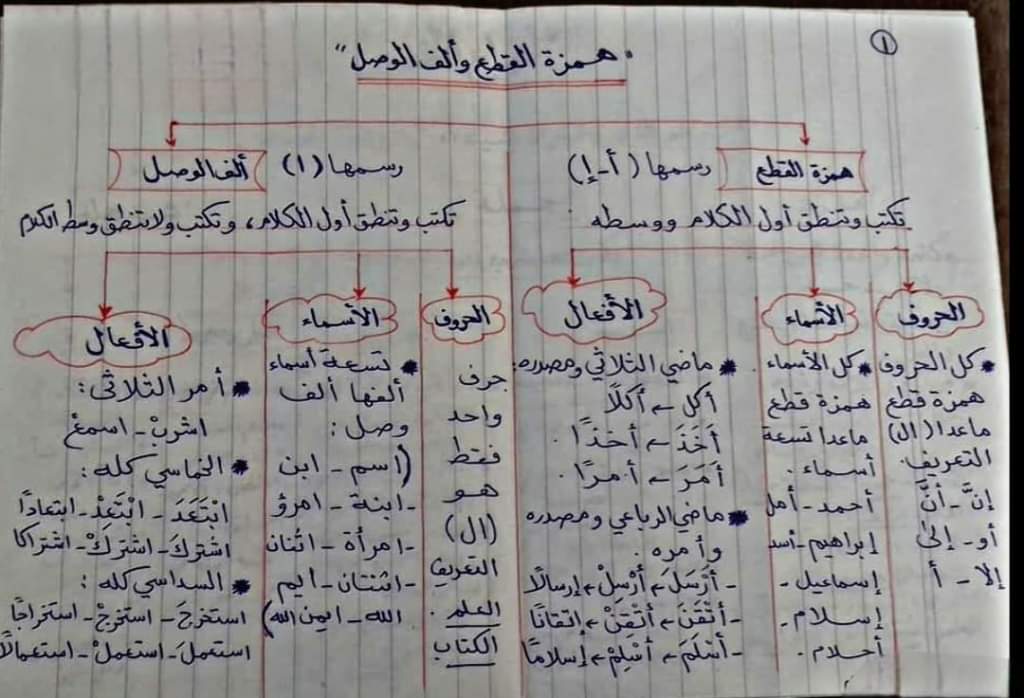 ١
"همزة القطع وألف الوصل"
همزة القطع
رسمها (أ-إ)
تكتب وتنطق أول الكلام ووسطه.
الحروف
* كل الحروف
همزة قطع
ماعدا (ال)
التعريف.
إنَّ - أنَّ
أو - إلى
إلا - أ
الأسماء
* كل الأسماء
همزة قطع
ماعدا تسعة
أسماء.
أحمد - أمل
إبراهيم - أسد
إسماعيل -
إسلام -
أحلام.
الأفعال
* ماضي الثلاثي ومصدره:
أكل ← أكلًا
أَخَذَ ← أخذًا.
أَمَرَ ← أمرًا.
* ماضي الرباعي ومصدره
وأمره.
- أَرْسَلَ ← أَرْسِلْ ← إرسالًا
- أَتْقَنَ ← أَتْقِنْ ← إتقانًا
- أَسْلَمَ ← أَسْلِمْ ← إسلامًا
ألف الوصل
رسمها (ا)
تكتب وتنطق أول الكلام، وتكتب ولا تنطق وسط الكلام
الحروف
حرف
واحد
فقط
هو
(ال)
التعريف
العلم.
الكتاب
الأسماء
* تسعة أسماء
ألفها ألف
وصل:
(اسم - ابن
- ابنة - امرؤ
- امرأة - اثنان
- اثنتان - ايم
الله - ايمن الله)
الأفعال
* أمر الثلاثى:
اشربْ - اسمعْ
* الخماسي كله:
ابْتَعَدَ - ابْتَعِدْ - ابتعادًا
اشتركَ - اشتركْ - اشتراكا
* السداسي كله:
استخرجَ - استخرجْ - استخراجًا
استعملَ - استعملْ - استعمالًا